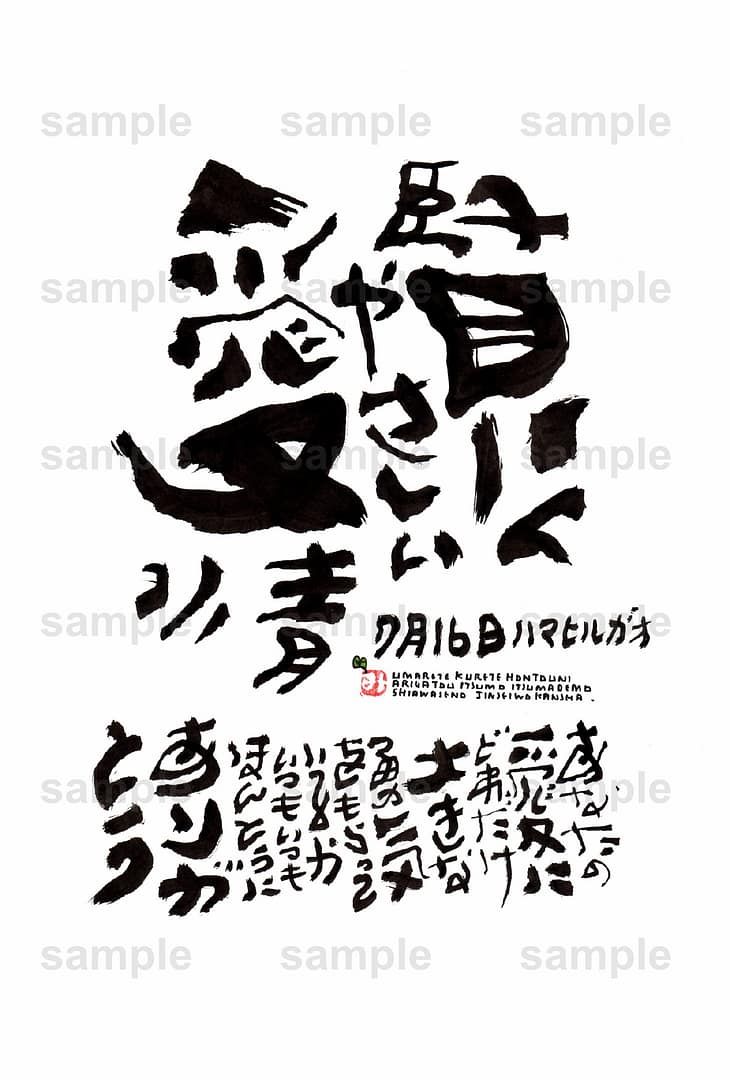 sample sample sample
賢く
やさしい
愛情
sample sample sample
sample sample sample
sample sample sample
7月16日ハマヒルガオ
UMARETE KURETE HONTOUNI
ARIGATOU ITSUMO ITSUMADEMO
SHIAWASENO JINSEIWO KANSHA .
あなたの
愛に
どれだけ
大きな
勇気
をもらって
いるか
いつもいつも
ほんとうに
ありが
とう
sample sample sample
sample sample sample